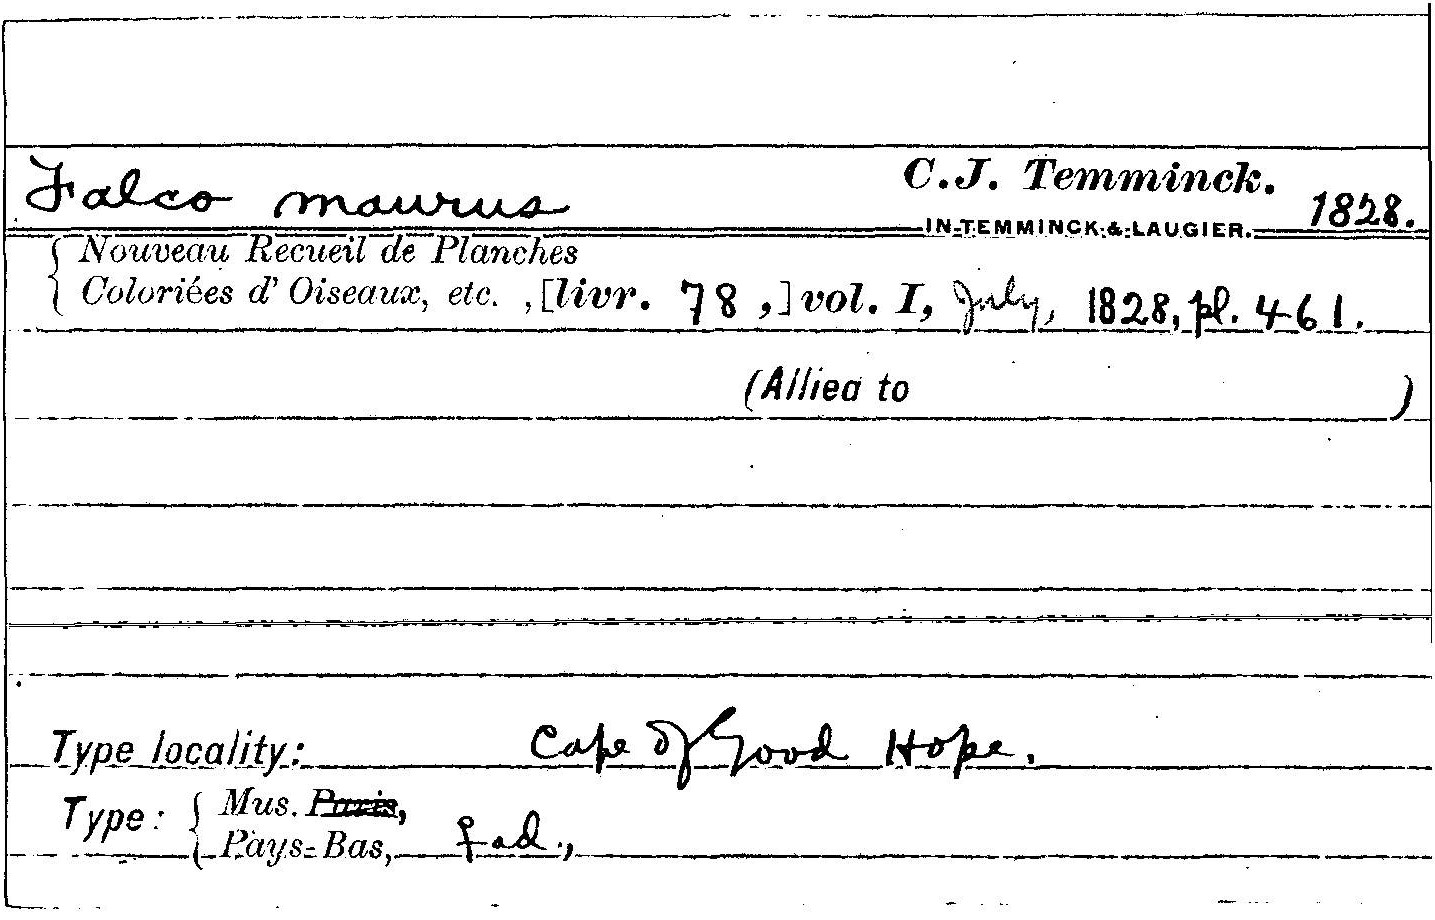 Falco maurus C.J. Temminck. 1828.
IN TEMMINCK & LAUGIER.
Nouveau Recueil de Planches
Coloriées d' Oiseaux, etc. , [livr. 78 ,] vol. I, July, 1828, pl. 461.
(Allied to )
Type locality: Cape of Good Hope.
Type: Mus. Paris,
Pays-Bas, ♀ ad.,